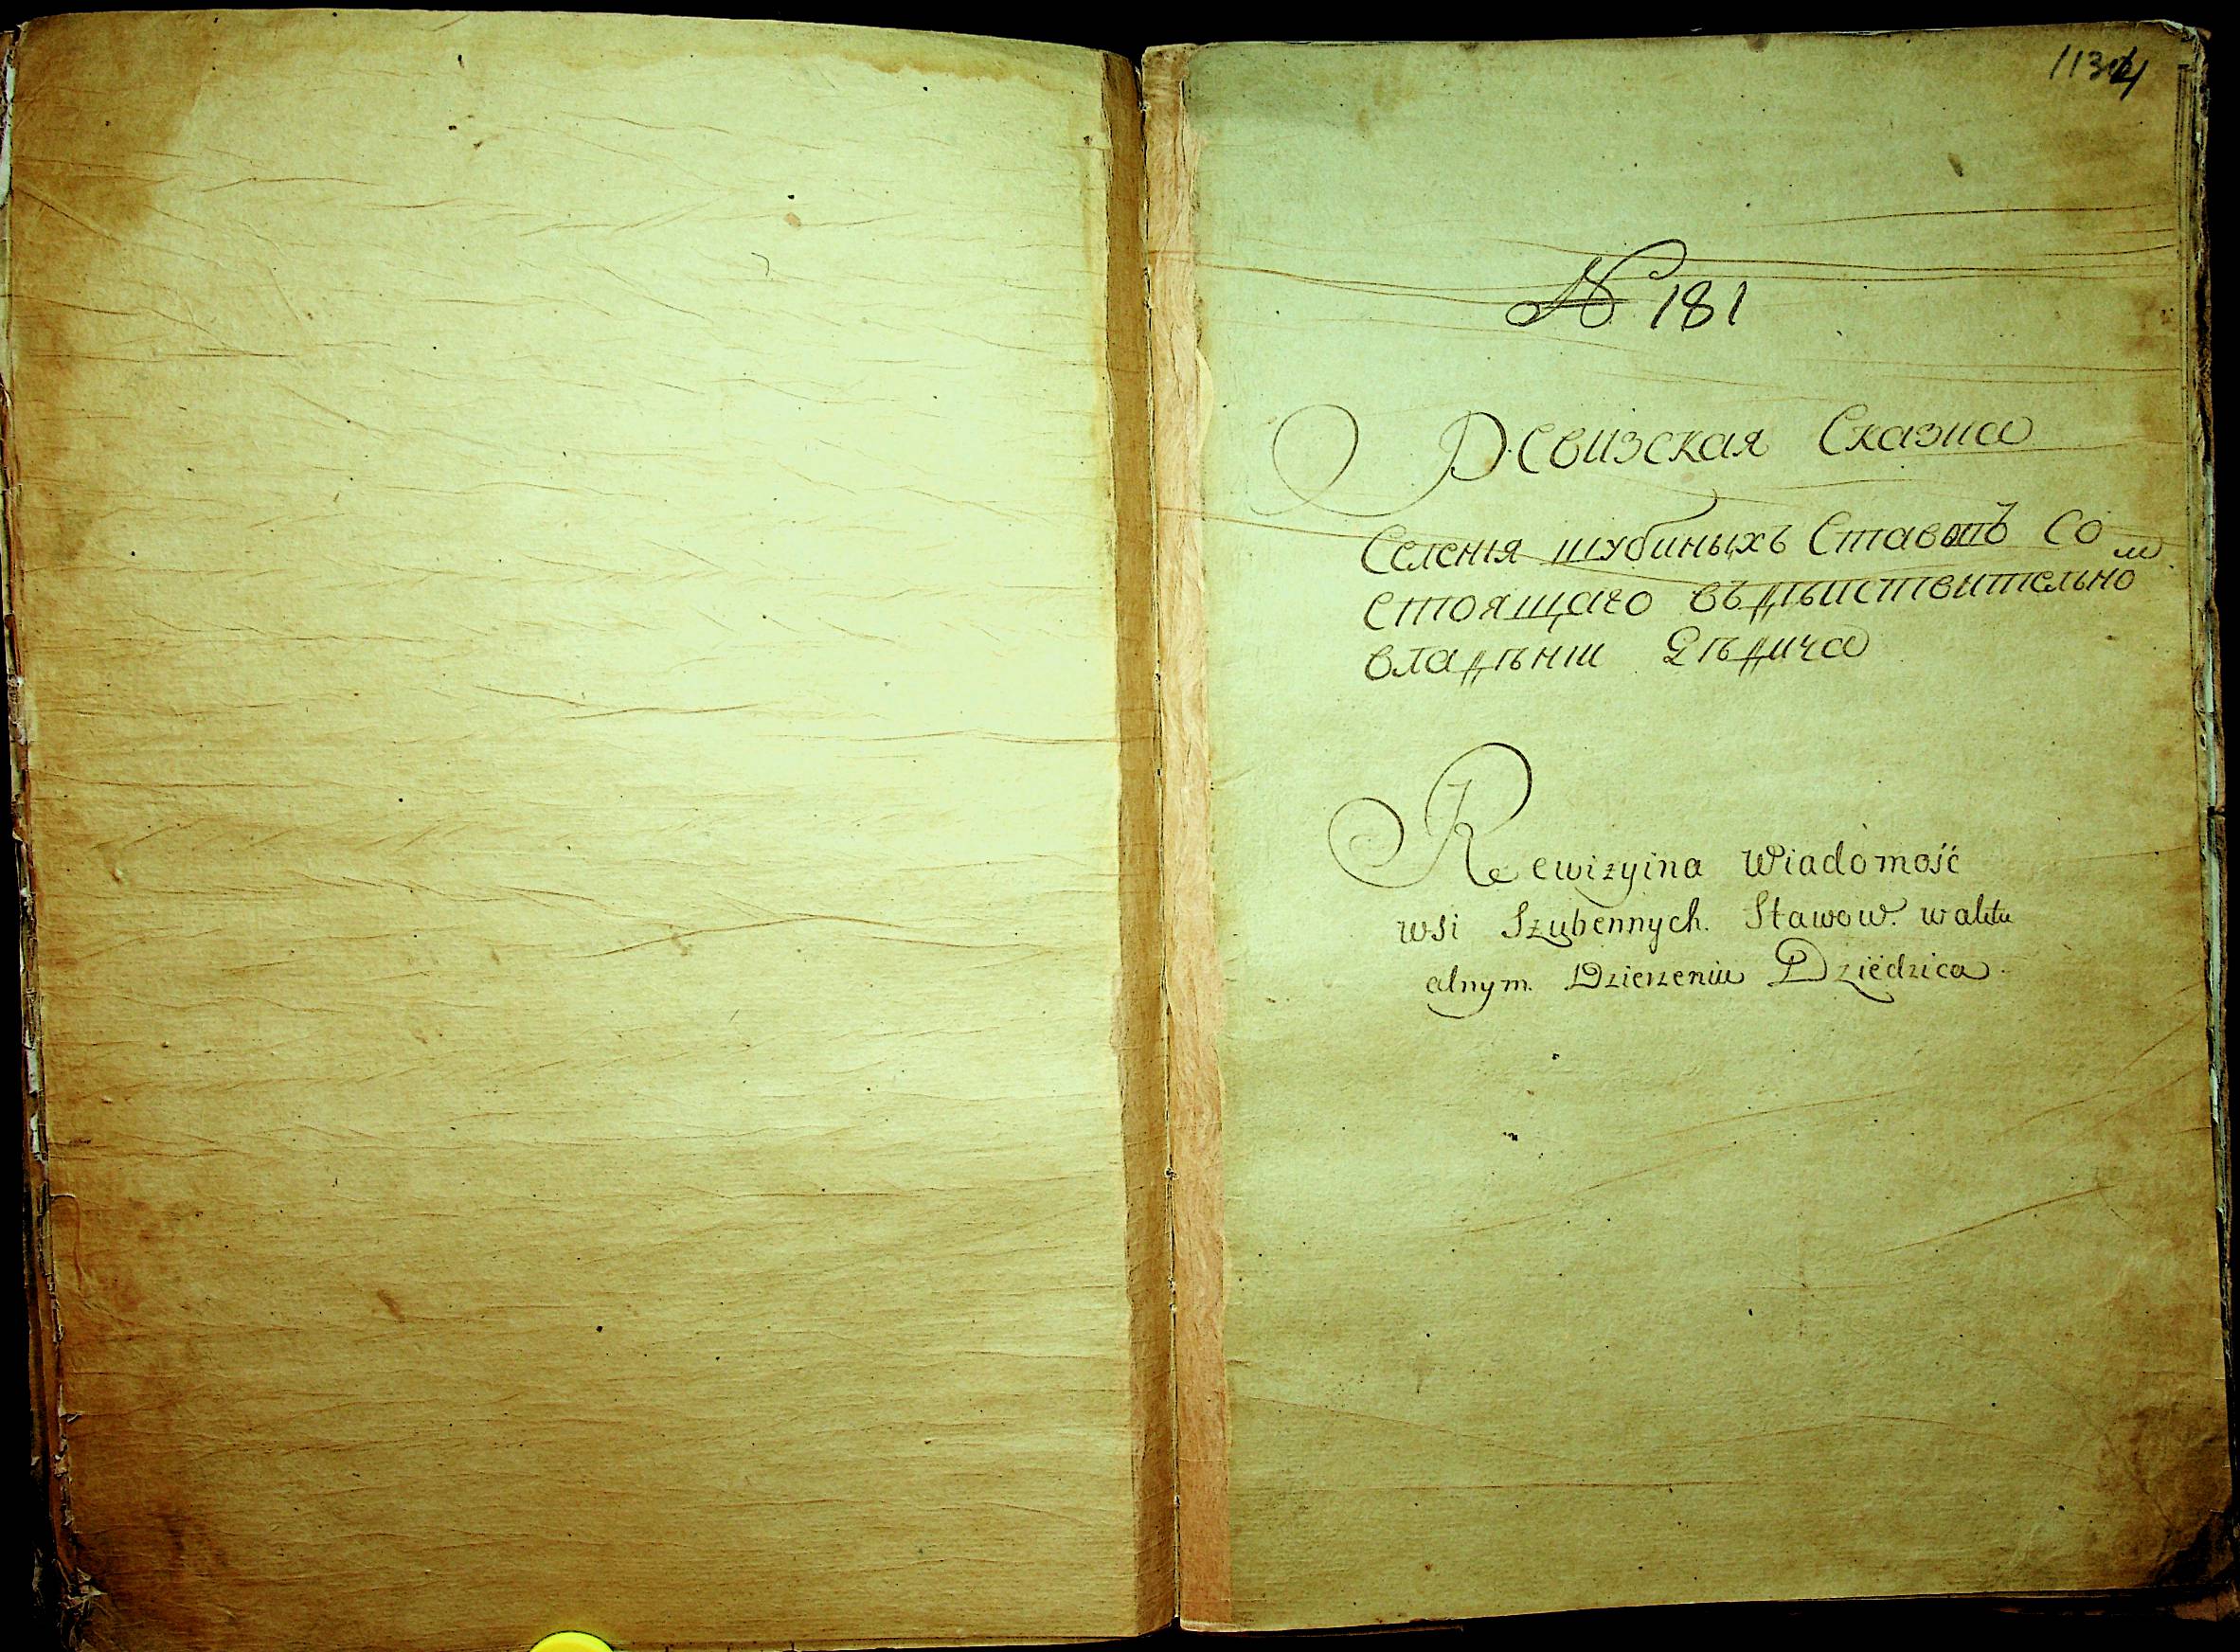 1134
№ 181
Ревизская Сказка
Селенія шубиныхъ Ставовъ Со
стоящаго въ дѣиствителъно м
владѣніи Дѣдича
Rewizyina Wiadomość
wsi Szubennych. Stawow. w aktu
alnym. Dzierzeniu Dziedzica.